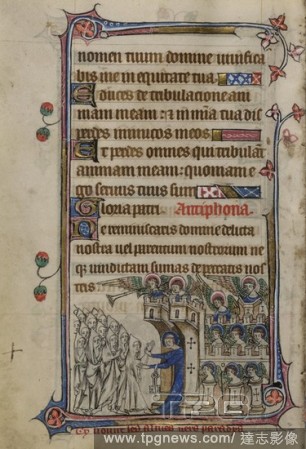 nomen tuum domine uiuifica
bis me in equitate tua.
Educes de tribulacione ani
mam meam: et in mia tua dis
perdes inimicos meos
Et perdes omnes qui tribulāt
animam meam: quoniam e
go seruus tuus sum
Gloria patri. Antiphona.
Ne reminiscaris domine delicta
nostra uel parentum nostrorum ne
q; uindictam sumas de peccatis nos
tris
TPG
www.tpgnews.com/ 達志影像